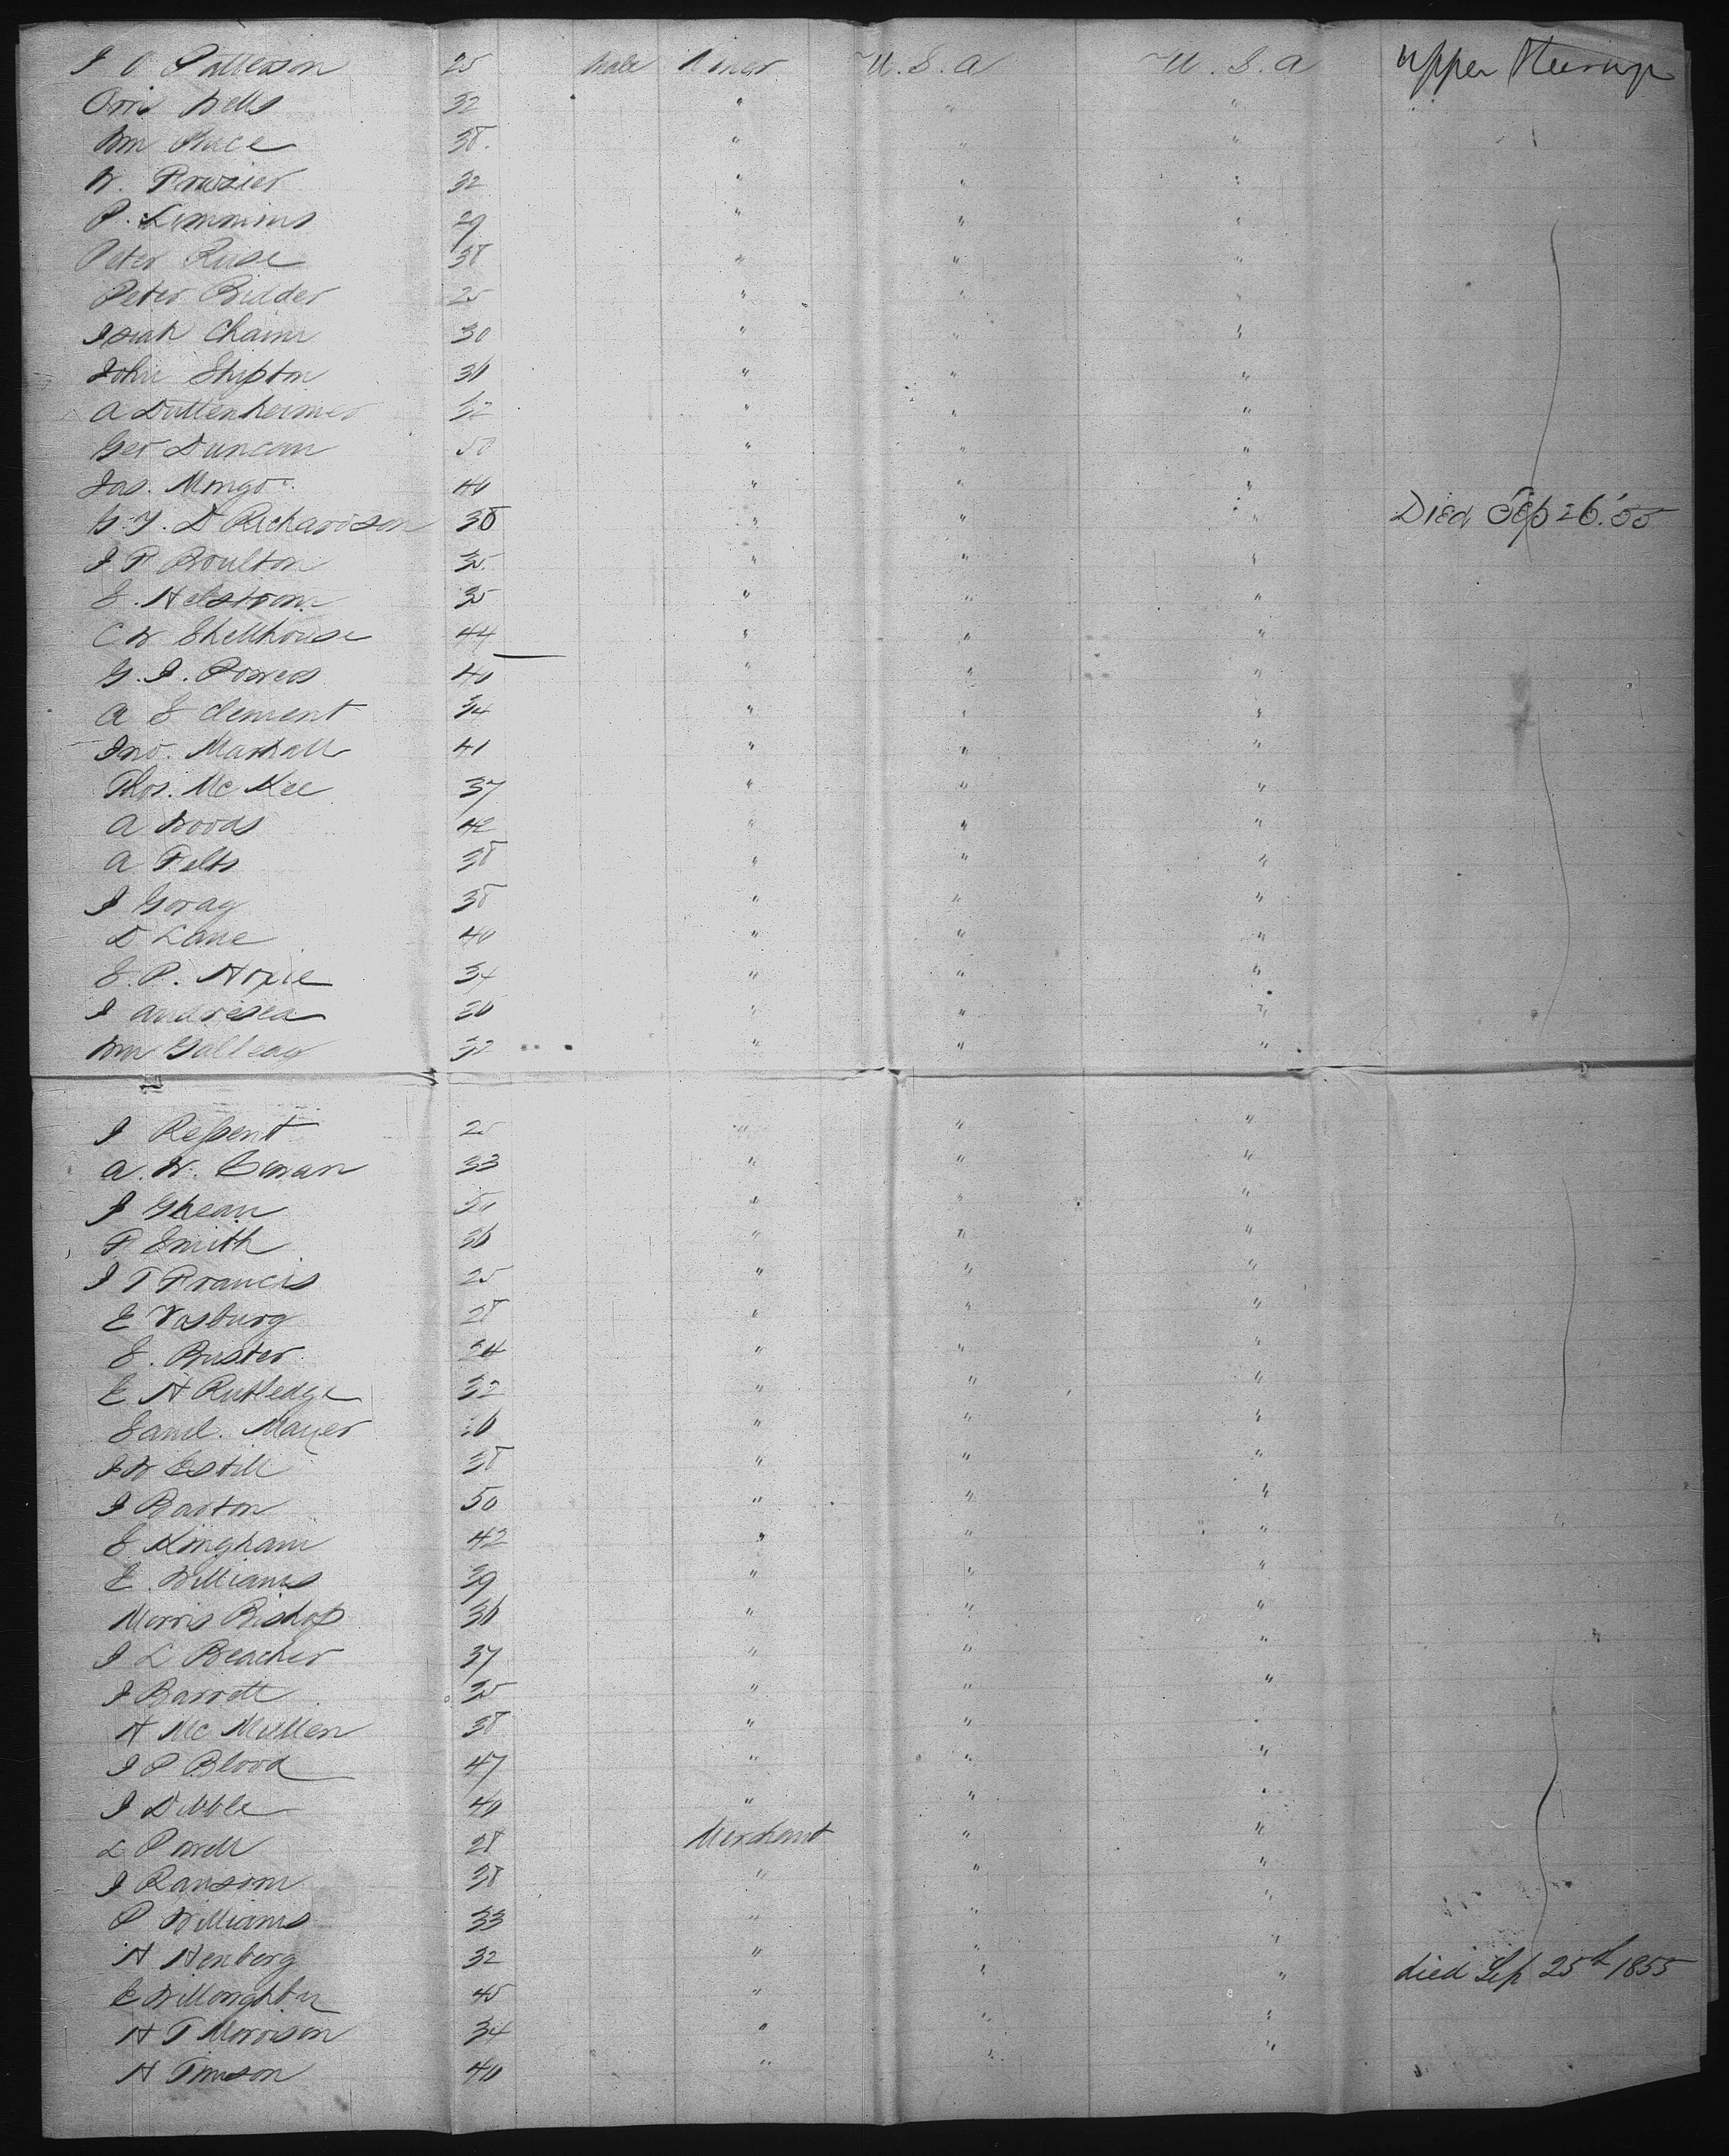 J O Patterson 25 Male Miner U.S.A U.S.A Upper Steerage
Orri Wells 32 " " "
Wm Place 38 " " "
W. Frazier 32 " " "
P. Simmins 29 " " "
Peter Ruse 38 " " "
Peter Bidder 25 " " "
Isiah Chaim 30 " " "
John Shipton 36 " " "
A Duttenheimer 32 " " "
Geo Duncan 50 " " "
Jas. Mingo 40 " " "
G. Y. D Richardson 38 " " " Died Sep 26.'55
J. P Boulton 35 " " "
S. Helstrom 35 " " "
C W Shellhouse 44 " " "
G. J. Powers 40 " " "
A S Clement 34 " " "
Jno. Marshall 41 " " "
Thos. McKee 37 " " "
A Woods 42 " " "
A Felts 38 " " "
J Gorag 38 " " "
D Lane 40 " " "
S. P. Hoxie 34 " " "
J Andresea 36 " " "
Wm 32 " " "
J Respent 25 " " "
A. W. 33 " " "
J Ghean 50 " " "
P Smith 36 " " "
J T Francis 25 " " "
E Vosburg 28 " " "
S. Buster 24 " " "
E H Rutledge 32 " " "
Saml. Mayer 36 " " "
J W Estill 38 " " "
J Barton 50 " " "
S Kingham 42 " " "
E. Williams 39 " " "
Morris Bishop 36 " " "
J L Beacher 37 " " "
J Barrett 35 " " "
H McMullen 38 " " "
J P Blood 47 " " "
J Dibble 40 " " "
L Powell 28 Merchant " "
J Ransom 38 " " "
P Williams 33 " " "
H Henberg 32 " " "
E Willoughby 45 " " " died Sep 25th 1855
H T Morrison 34 " " "
H Timson 40 " " "